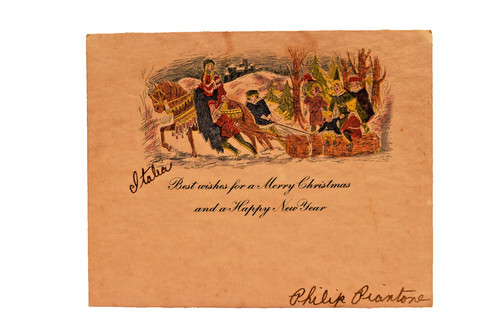 Italia
Best wishes for a Merry Christmas
and a Happy New Year
Philip Piantone